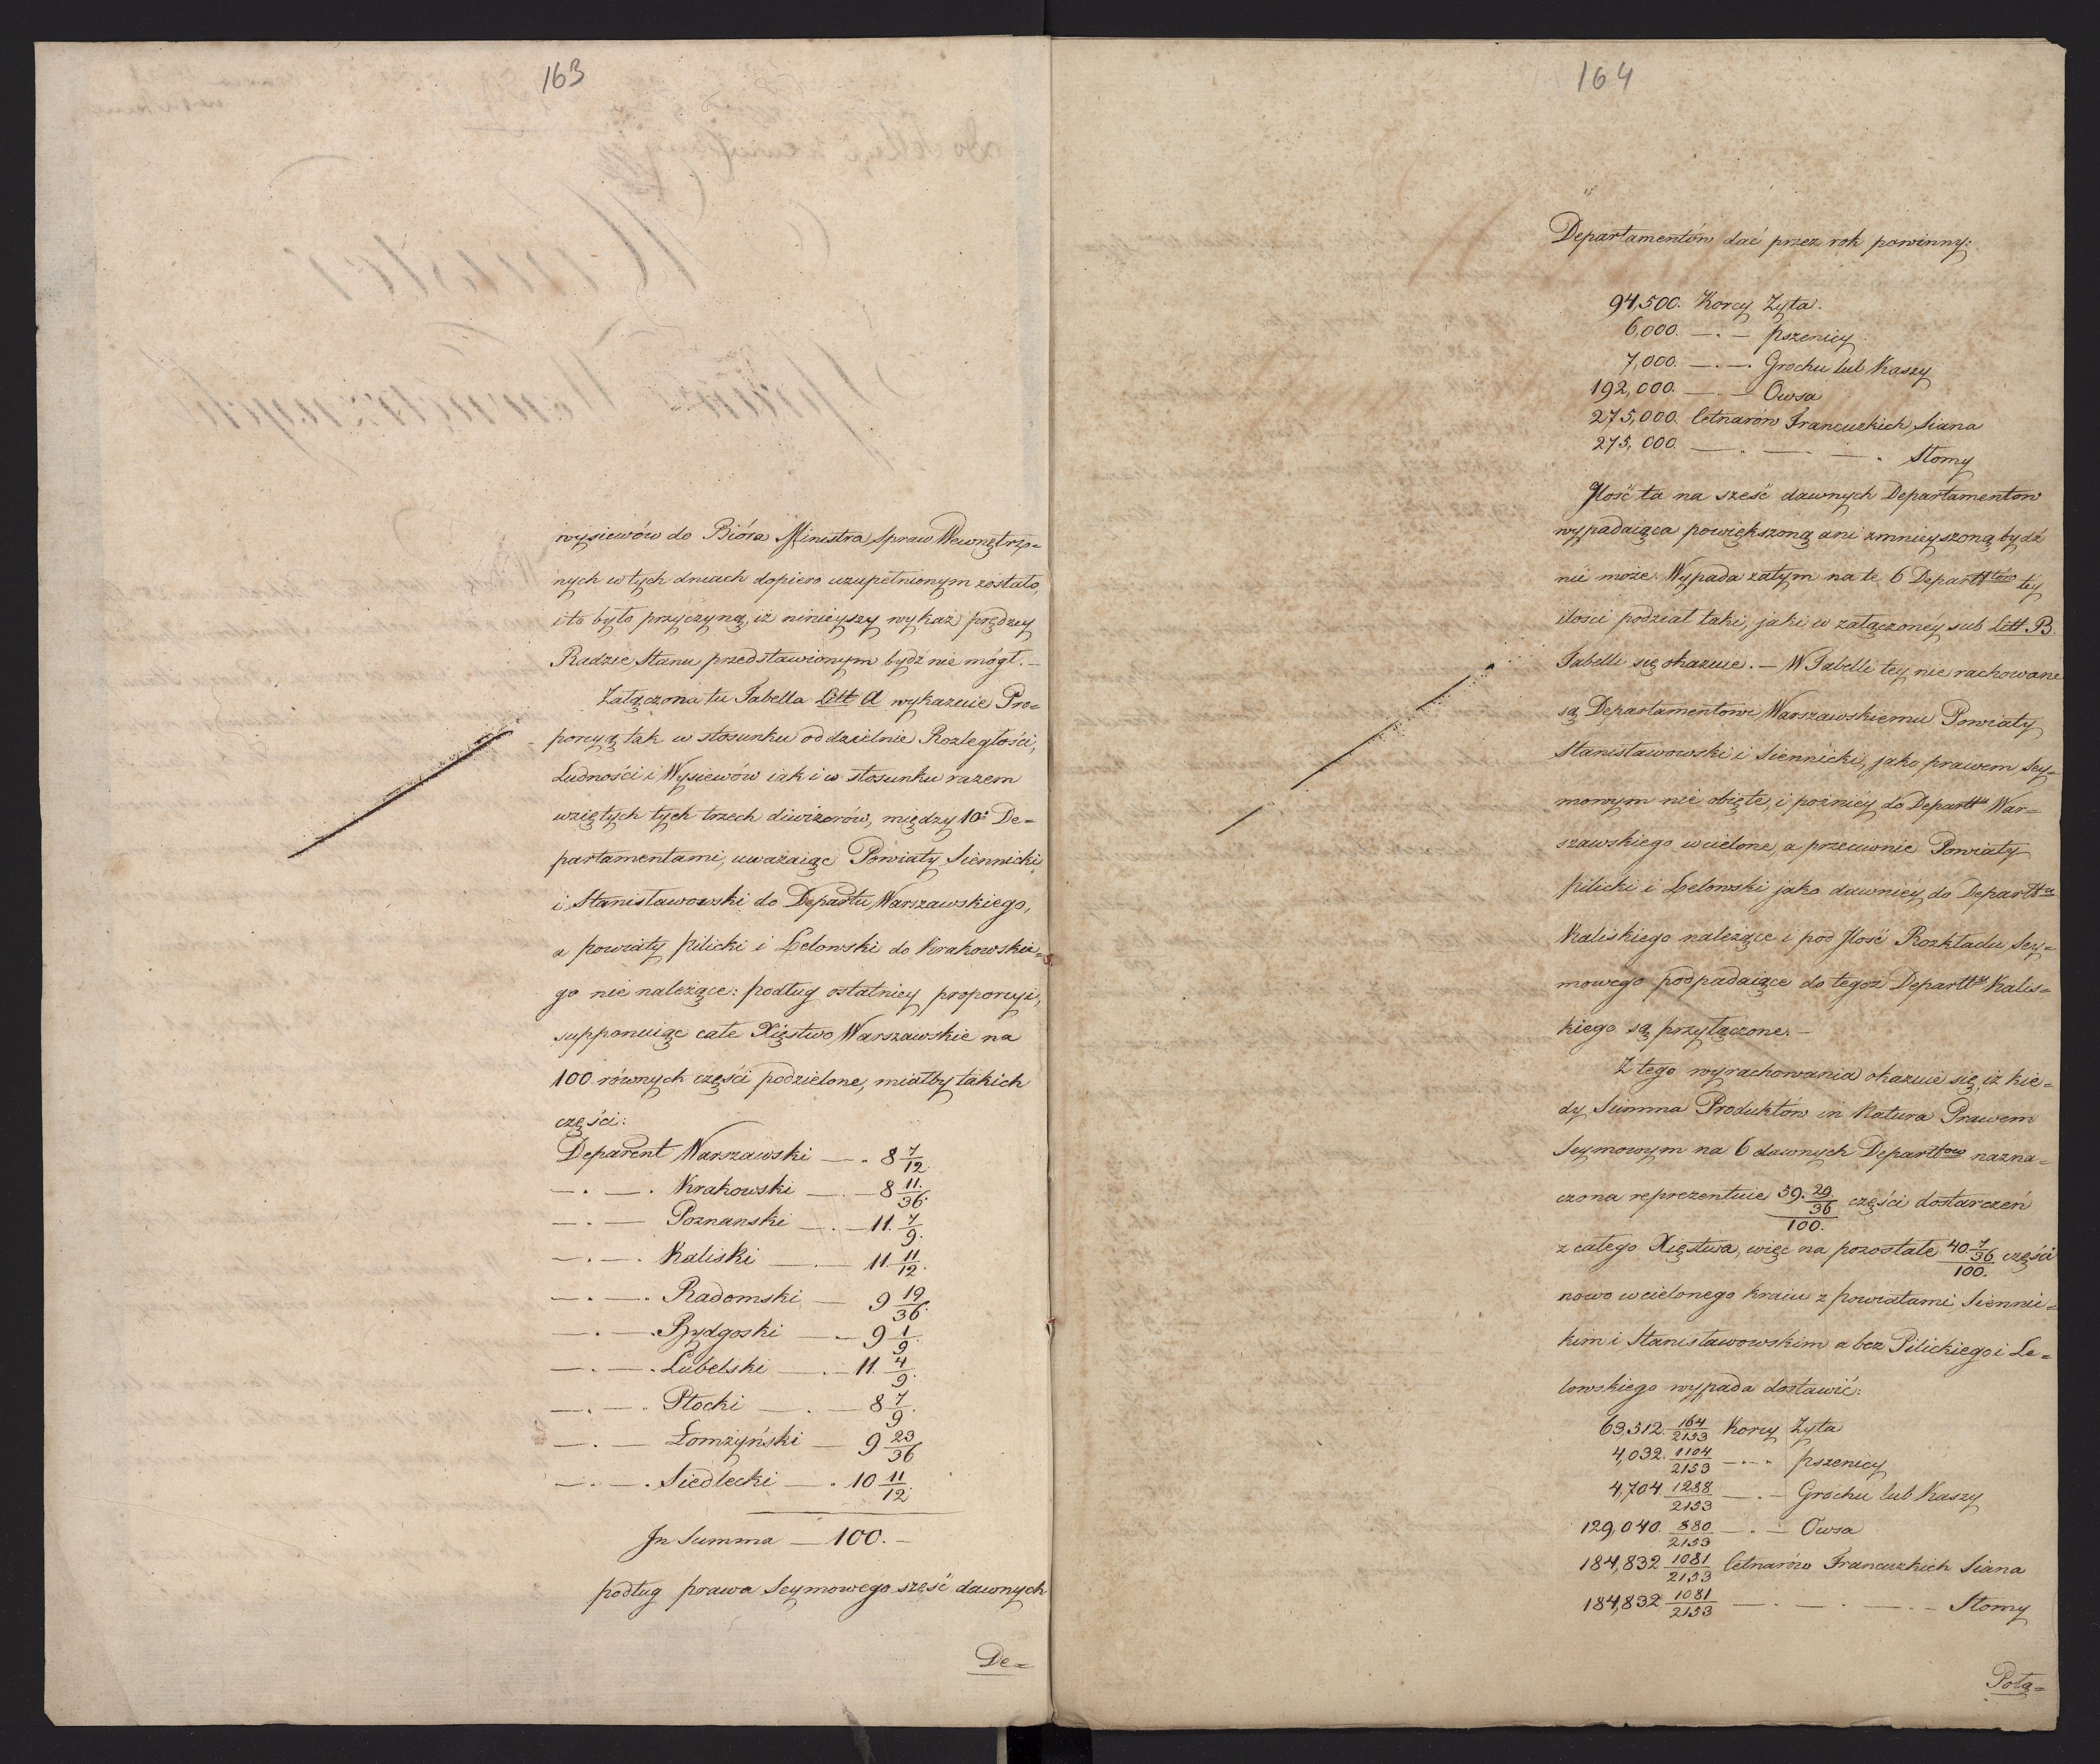 163
wysiewów do Bióra Ministra Spraw Wewnętrz=
nych w tych dniach dopiero uzupełnionym zostało,
i to było przyczyną, iż ninieyszy wykaz prędzey
Radzie Stanu przedstawionym bydź nie mógł. —
Załączona tu Tabella Litt A wykazuie Pro=
porcyą tak w stosunku oddzielnie Rozległości,
Ludności i Wysiewów iak i w stosunku razem
wziętych tych trzech diwizorów, między 10. De=
partamentami, uważaiąc Powiaty Siennicki
i Stanisławowski do Departu Warszawskiego,
a powiaty Pilicki i Lelowski do Krakowskie=
go nie należące: podług ostatniey proporcyi,
supponuiąc całe Xięstwo Warszawskie na
100 równych części podzielone, miałby takich
części:
Deparent Warszawski — . 8 7/12.
— . — . Krakowski — . — 8 11/36.
— . — Poznanski — . — 11. 7/9.
— . — . Kaliski — . — 11 11/12.
— . — . Radomski — 9 19/36.
— . — . Bydgoski — . — 9 1/9.
— . — . Lubelski — . — 11. 4/9.
— . — . Płocki — . — 8 7/9.
— . — Łomżyński — 9 23/36
— . — . Siedlecki — . 10 11/12.
In Summa — 100. —
podług prawa Seymowego sześć dawnych
De=
164
Departamentów dać przez rok powinny:
94,500. Korcy Żyta.
6,000. — . — pszenicy
7,000. — . — . Grochu lub Kaszy
192,000. — . — Owsa
275,000. Cetnarów Francuzkich Siana
275,000. — . — . — . Słomy
Ilość ta na sześć dawnych Departamentow
wypadaiąca powiększoną ani zmnieyszoną bydź
nie może. Wypada zatym na te 6 Departttów tey
ilości podział taki, jaki w załączoney sub Litt B.
Tabelli się okazuie. — W Tabelli tey nie rachowane
są Departamentowi Warszawskiemu Powiaty
Stanisławowski i Siennicki, jako prawem Sey=
mowym nie obięte, i poźniey do Departtu War=
szawskiego wcielone, a przeciwnie Powiaty
Pilicki i Lelowski jako dawniey do Departtu
Kaliskiego należące i pod Ilość Rozkładu Sey=
mowego podpadaiące do tegoż Departtu Kalis=
kiego są przyłączone. —
Z tego wyrachowania okazuie się, iż kie=
dy Summa Produktów in Natura Prawem
Seymowym na 6 dawnych Departtow nazna=
czona reprezentuie 59. 29/36 /100. części dostarczeń
z całego Xięstwa, więc na pozostałe 40 7/36 /100. części
nowo wcielonego kraiu z powiatami Siennic=
kim i Stanisławowskim a bez Pilickiego i Le=
lowskiego wypada dostawić:
63,512. 164/2153 Korcy Żyta
4,032. 1104/2153 — . — . pszenicy
4,704. 1288/2153 — . — Grochu lub Kaszy
129,040. 880/2153 — . — Owsa
184,832 1081/2153 Cetnarów Francuzkich Siana
184,832 1081/2153 — . — . — . — Słomy
Pota=